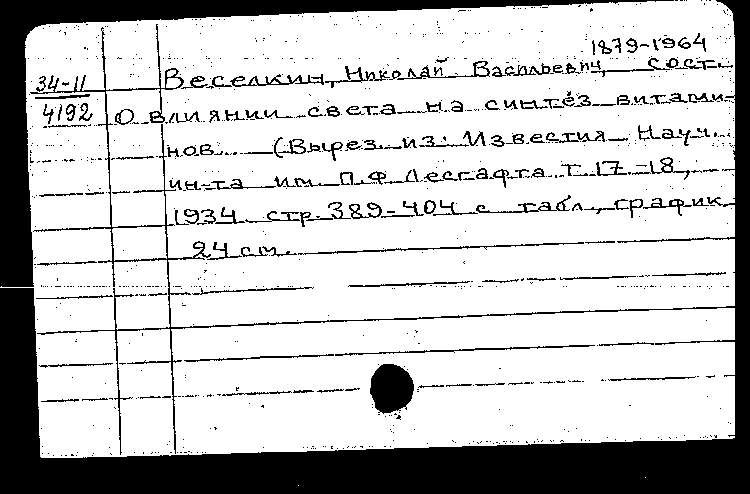 1879-1964
34-11 Веселкин, Николай Васильевич, сост.
4192 О влиянии света на синтез витами-
нов. (Вырез. из: Известия Науч.
ин-та им. П.Ф. Лесгафта т. 17-18,
1934 стр. 389-404 с табл., график
24 см.